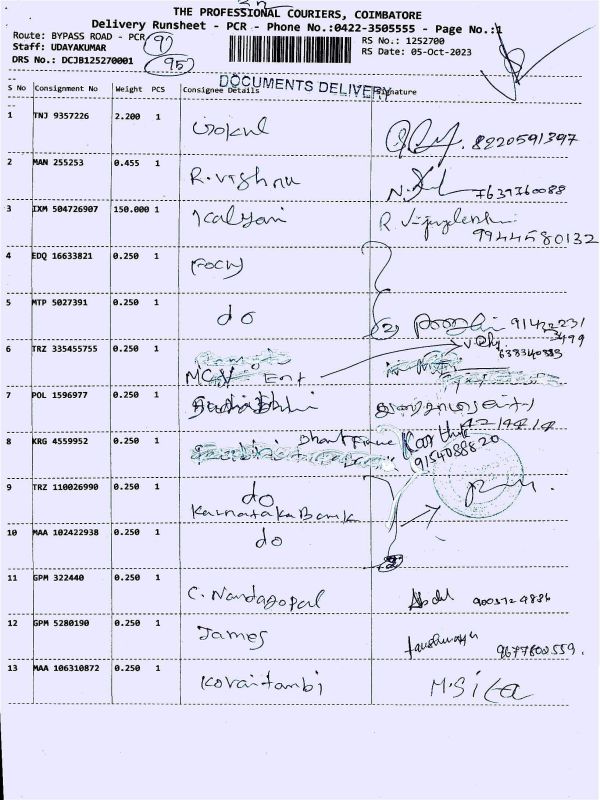 THE PROFESSIONAL COURIERS, COIMBATORE
Delivery Runsheet - PCR - Phone No.:0422-3505555 - Page No.:1
Route: BYPASS ROAD - PCR 9
RS No.: 1252700
Staff: UDAYAKUMAR
RS Date: 05-Oct-2023
DRS No.: DCJB125270001 95
DOCUMENTS DELIVERY
S No Consignment No Weight PCS Consignee Details Signature
1 TNJ 9357226 2.200 1 Gokul 8220591397
2 MAN 255253 0.455 1 R. Vishnu 7639760088
3 IXM 504726907 150.000 1 Kalyani R. 9944580132
4 EDQ 16633821 0.250 1 Focus
5 MTP 5027391 0.250 1 do
6 TRZ 335455755 0.250 1
7 POL 1596977 0.250 1
8 KRG 4559952 0.250 1 Karthik 9154088820
9 TRZ 110026990 0.250 1 do
Karnataka Bank
10 MAA 102422938 0.250 1 do
11 GPM 322440 0.250 1 C. Nandagopal Abdul
12 GPM 5280190 0.250 1 James 9677800559.
13 MAA 106310872 0.250 1 Kovaitambi M. Sita